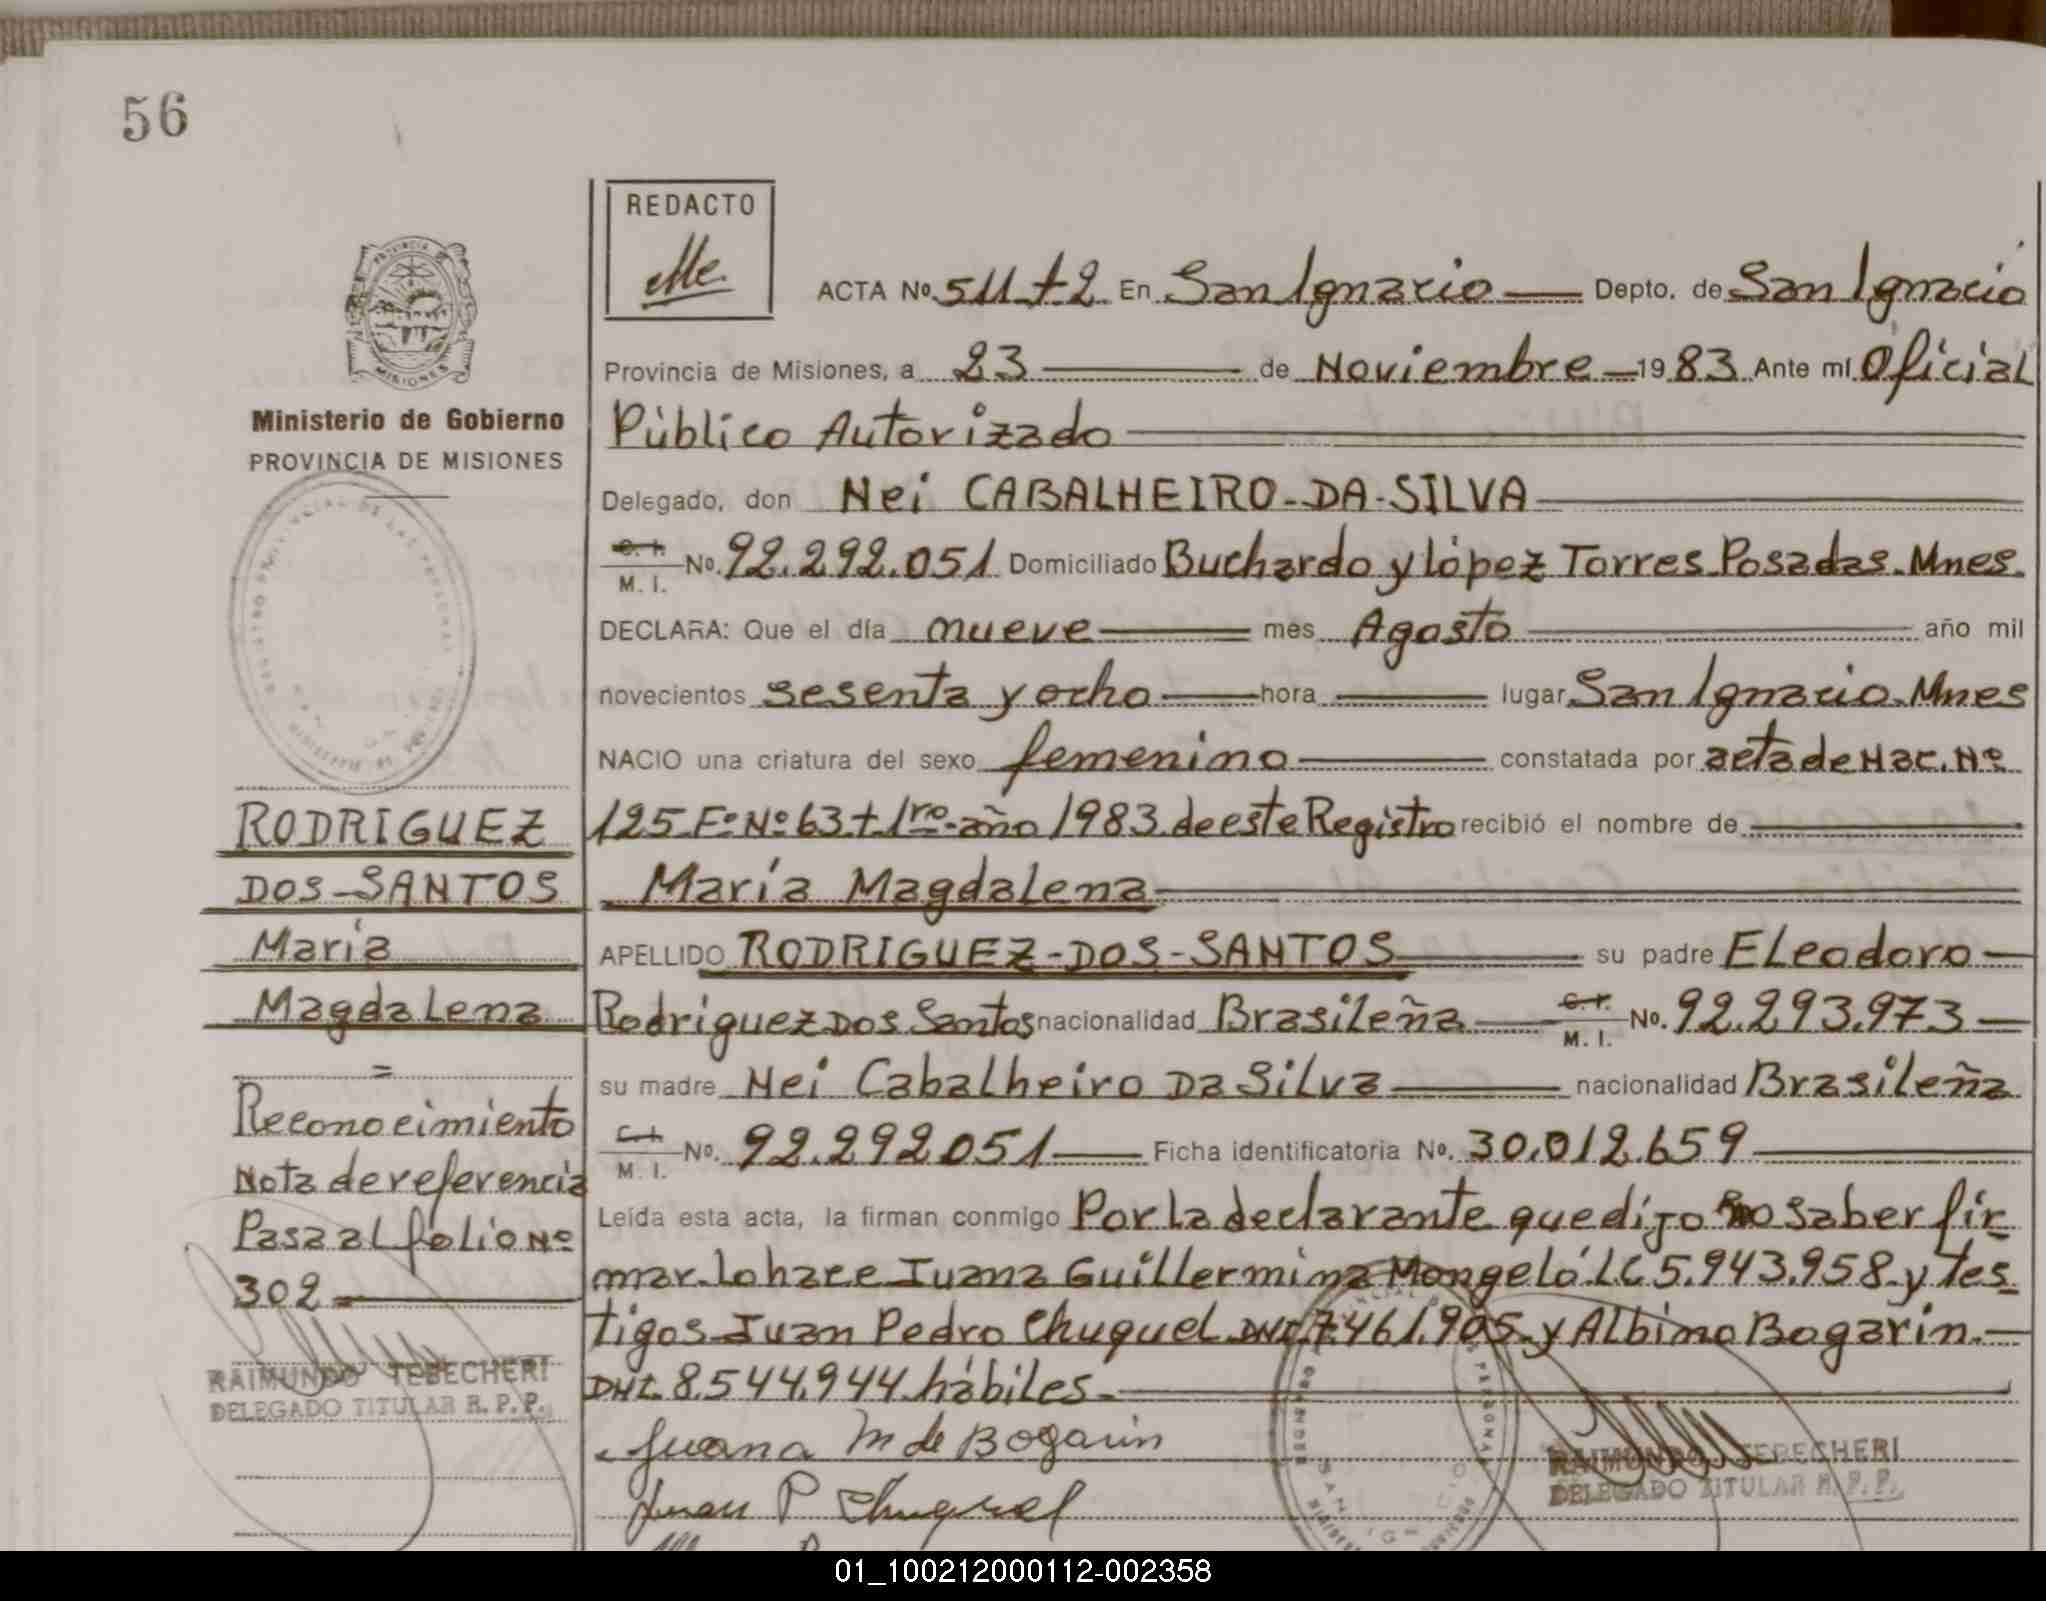 56
REDACTO
ACTA Nº 511 t 2 En San Ignacio Depto. de San Ignacio
Provincia de Misiones, a 23 de Noviembre 1983 Ante mí Oficial
Público Autorizado
Delegado, don Nei CABALHEIRO-DA-SILVA
C. I. M. I. Nº. 92.292.051 Domiciliado Buchardo y López Torres Posadas. Mnes.
DECLARA: Que el día nueve mes Agosto año mil
novecientos sesenta y ocho hora lugar San Ignacio. Mnes
NACIO una criatura del sexo femenino constatada por acta de Nac. Nº
125 Fº Nº 63 t 1ro año 1983 de este Registro recibió el nombre de
María Magdalena
APELLIDO RODRIGUEZ-DOS-SANTOS su padre Eleodoro
Rodriguez Dos Santos nacionalidad Brasileña C. I. M. I. Nº. 92.293.973
su madre Nei Cabalheiro Da Silva nacionalidad Brasileña
C. I. M. I. Nº. 92.292051 Ficha identificatoria Nº. 30.012.659
Leída esta acta, la firman conmigo Por la declarante que dijo no saber fir
mar lo hace Juana Guillermina Mongeló LC 5.943.958 y tes
tigos Juan Pedro Chuquel DNI. 7.461.905 y Albino Bogarín.
DNI. 8.544.944 hábiles.
Juana M de Bogarin
Juan P Chuquel
RAIMUNDO TEBECHERI
DELEGADO TITULAR R. P. P.
PROVINCIA DE
MISIONES
Ministerio de Gobierno
PROVINCIA DE MISIONES
RODRIGUEZ
DOS-SANTOS
María
Magdalena
=
Reconocimiento
Nota de referencia
Pasa al folio Nº
302
RAIMUNDO TEBECHERI
DELEGADO TITULAR R. P. P.
01_100212000112-002358